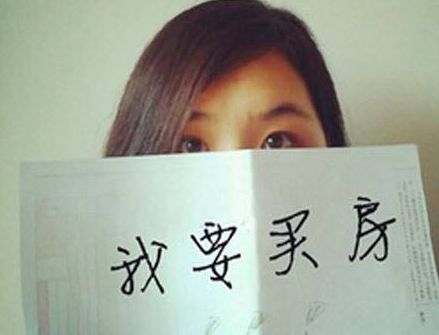 我要买房